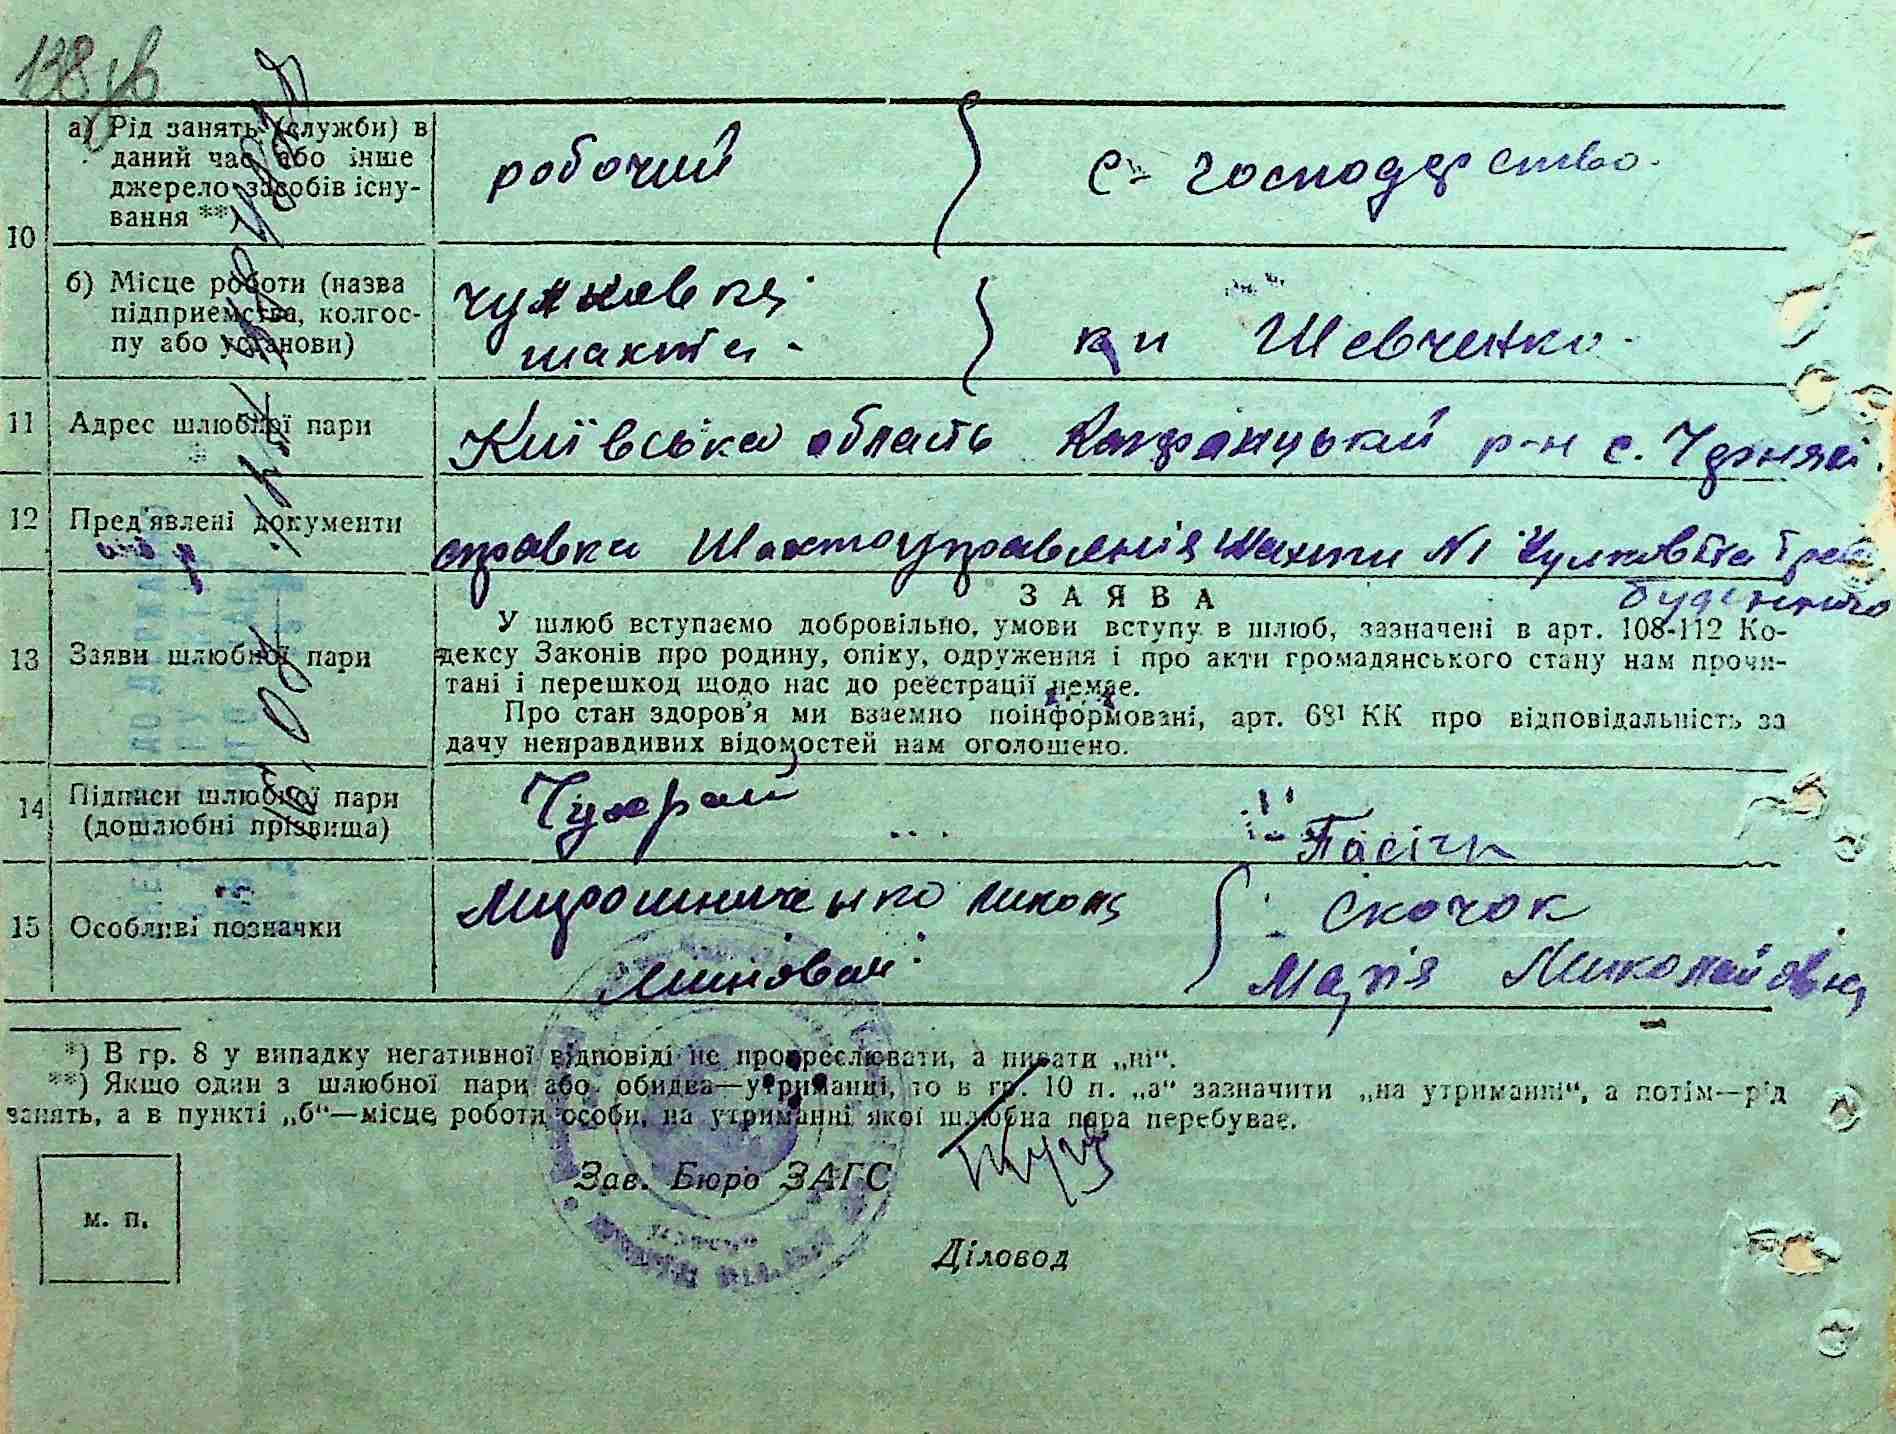 138 зв
10
а) Рід занять (служби) в
даний час або інше
джерело засобів існу-
вання **)
робочий
С-господарство.
б) Місце роботи (назва
підприємства, колгос-
пу або установи)
шахти-
Шевченко.
11
Адрес шлюбної пари
Київська область р-н с.
12
Пред'явлені документи
справка Шахтоуправлінія Шахти №1
13
Заяви шлюбної пари
ЗАЯВА
У шлюб вступаємо добровільно, умови вступу в шлюб, зазначені в арт. 108-112 Ко-
дексу Законів про родину, опіку, одруження і про акти громадянського стану нам прочи-
тані і перешкод щодо нас до реєстрації немає.
Про стан здоров'я ми взаємно поінформовані, арт. 68¹ КК про відповідальність за
дачу неправдивих відомостей нам оголошено.
14
Підписи шлюбної пари
(дошлюбні прізвища)
Чухрай
Пасічн
15
Особливі позначки
Мирошниченко
Скочок
Марія Миколаївна
*) В гр. 8 у випадку негативної відповіді не прокреслювати, а писати „ні“.
**) Якщо один з шлюбної пари або обидва—утриманці, то в гр. 10 п. „а“ зазначити „на утриманні“, а потім—рід
занять, а в пункті „б“—місце роботи особи, на утриманні якої шлюбна пара перебуває.
Зав. Бюро ЗАГС
м. п.
Діловод